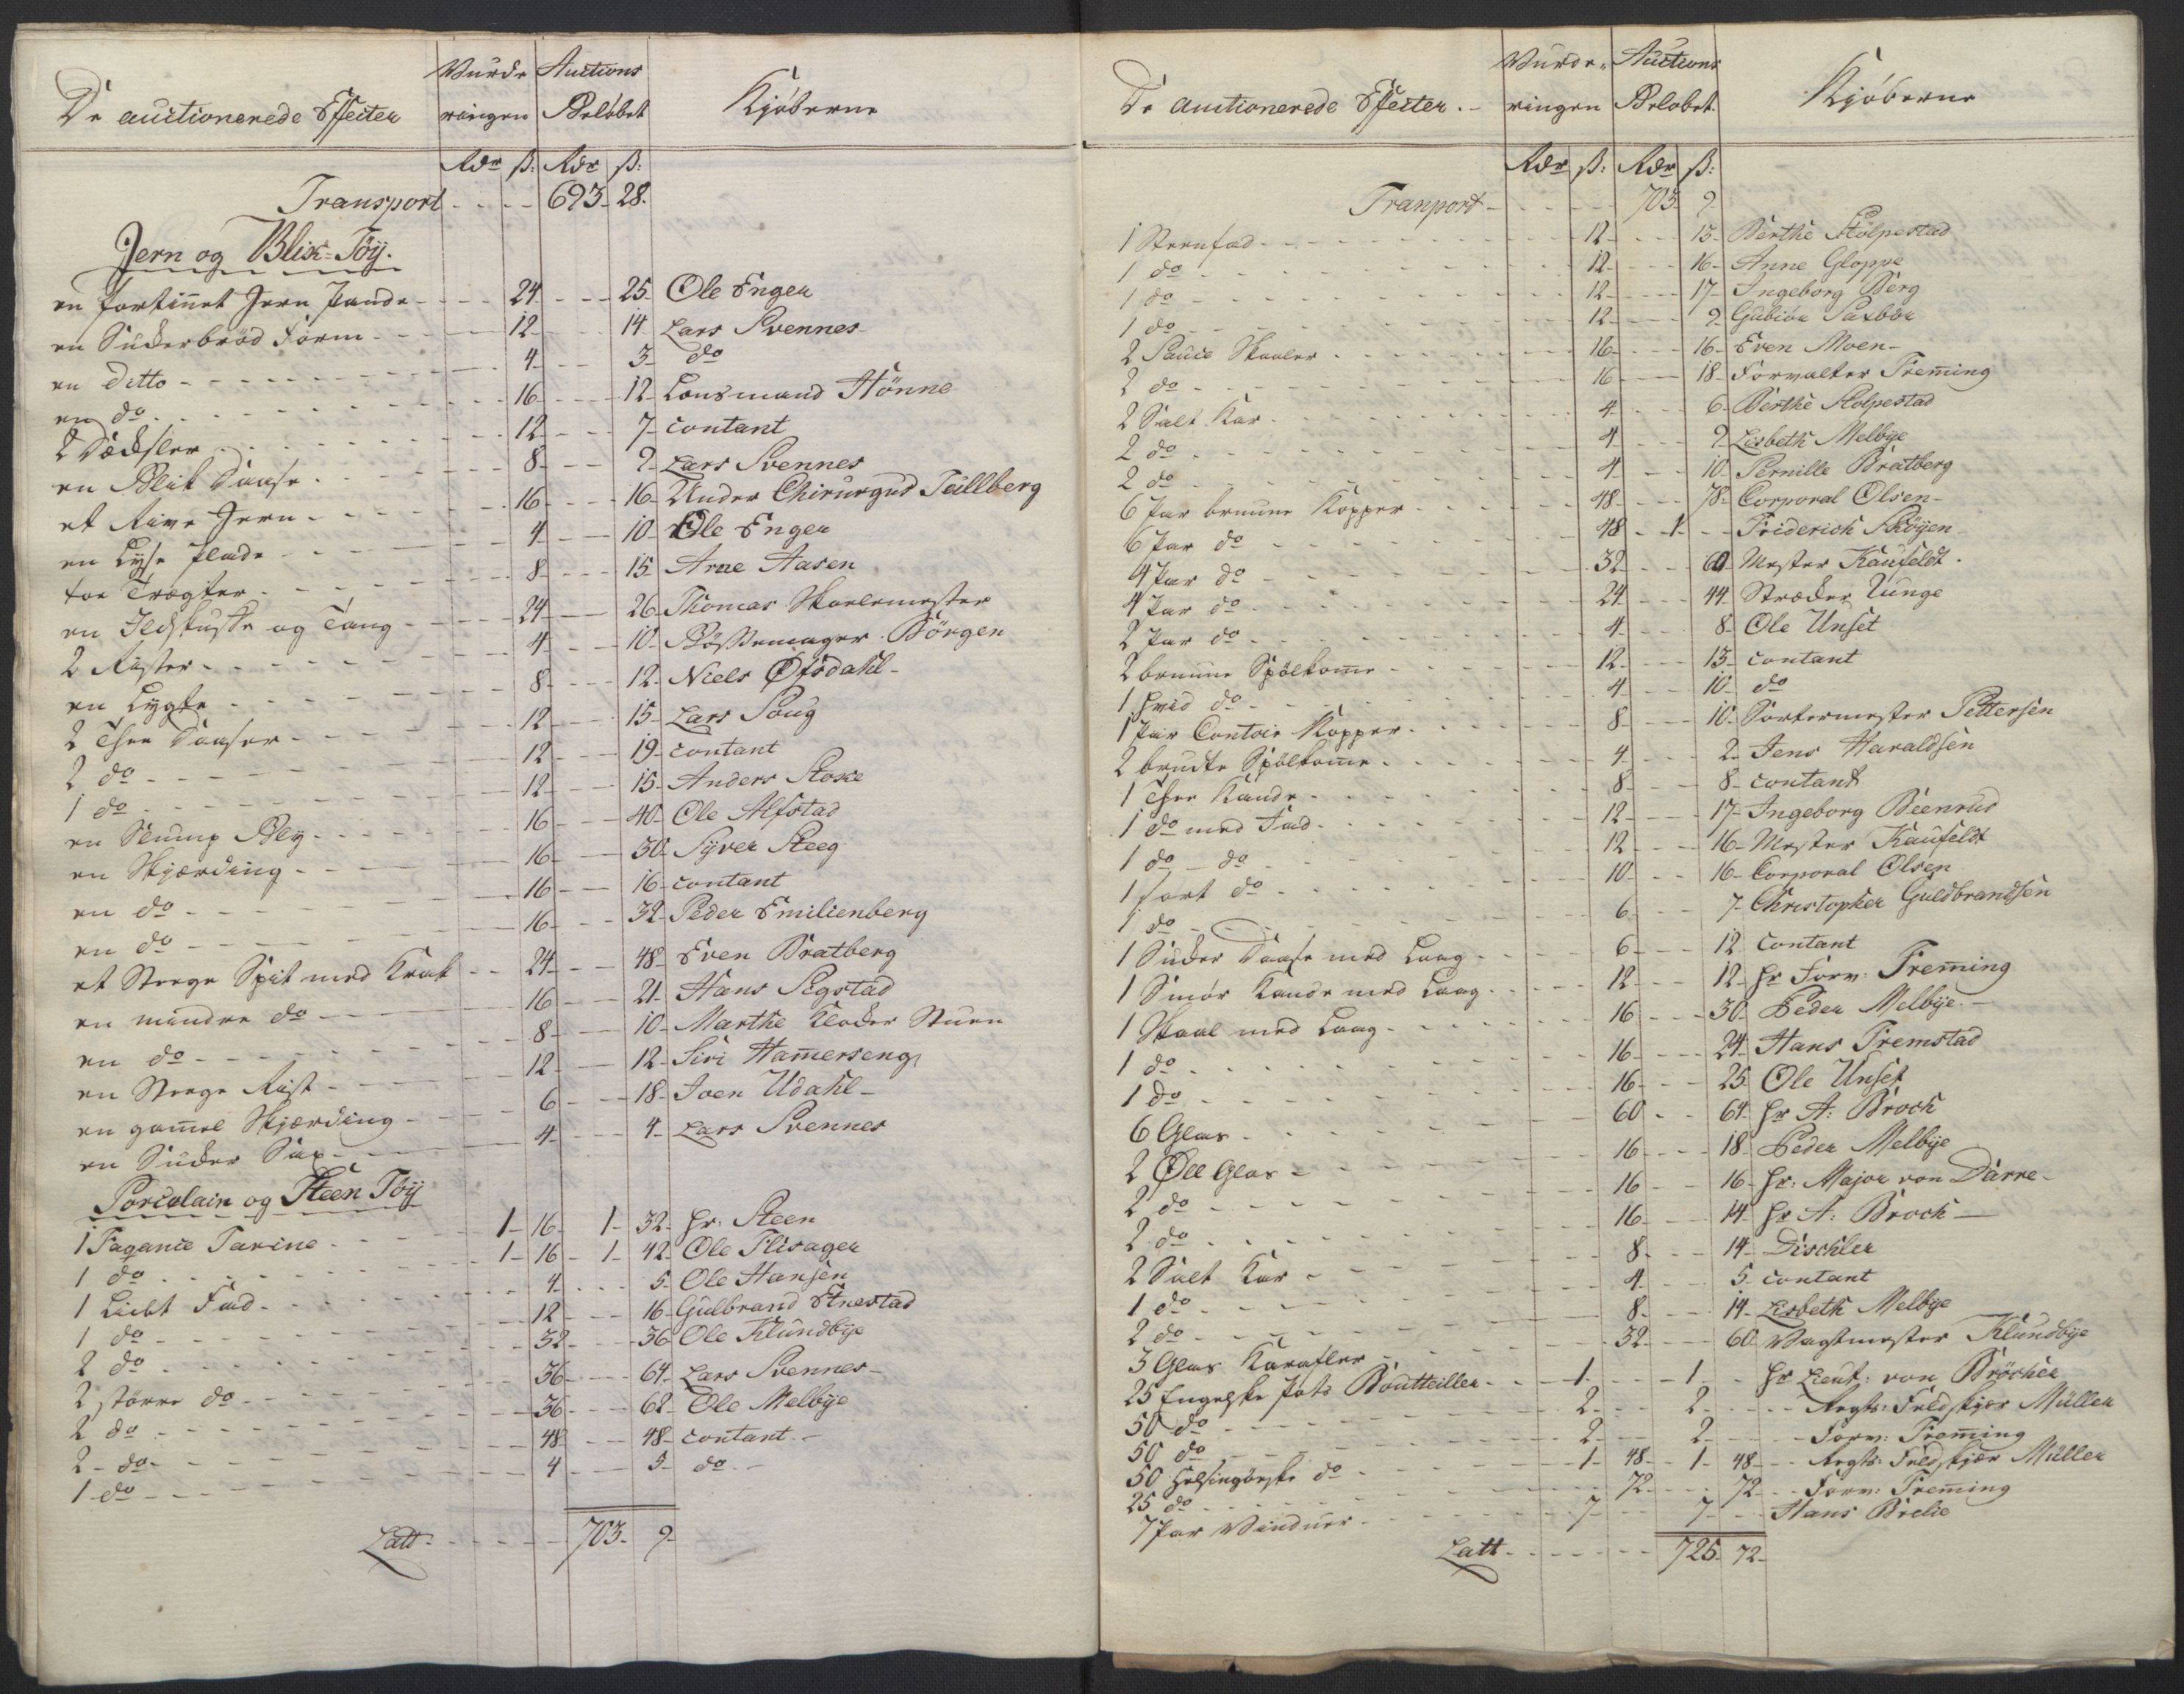 De auctionerede Effecter
Vurde Auctions
ringen Beløbet Kjøberne
Rdr ß: Rdr ß:
Transport - - - - 693 - 28.
Jern og Blik-Tøÿ.
en fortinnet Jern Pande - - 24 - - - 25 - Ole Enger
en Sukerbrød Form - - 12 14 Lars Svennes
en ditto - - - 4 - - - 3 do
en do - - - 16 - - - 12 - Lensmand Hønne
2 Dæksler - - - 12 - - - 7 - contant
en Blik Daase - - - 8 - - - 9 - Lars Svennes
et Rive Jern - - - 16 - - - 16 - Under Chirurgus Tullberg
en Lyse Plade - - - 4 - - - 10 - Ole Enger
toe Tragter - - - 8 - - - 15 - Arne Aasen
en Ildskuffe og Tang - - - 24 - - - 26 - Thomas Skolemester
2 Rister - - - 4 - - - 10 - Bøssemager Børgen
en Lygte - - - 8 - - - 12 - Niels Øfsdahl -
2 Thee Daaser - - - 12 - - - 15 - Lars Soug
2 do - - - 12 - - - 19 - contant
1 do - - - 12 - - - 15 - Anders Stoke
en Klump Bly - - - 16 - - - 40 - Ole Alfstad
en Skjærding - - - 16 - - - 30 - Syver Steeg
en do - - - 16 - - - 16 - contant
en do - - - 16 - - - 32 - Peder Emilienberg
et Stege Spit med Krak - - 24 - - - 48 - Even Bratberg
en mindre do - - - 16 - - - 21 - Hans Segstad
en do - - - 8 - - - 10 - Marthe Kloker Stuen
en Stege Rist - - - 12 - - - 12 - Siri Hammerseng
en gammel Skjærding - - - 6 - - - 18 - Joen Udahl -
en Suker Sax - - - 4 - - - 4 - Lars Svennes
Porcelain og Steen Tøÿ
1 Fagance Tarine - - - 1 - 16 - 1 - 32 - Hr: Steen
1 do - - - 1 - 16 - 1 - 42 - Ole Flisager
1 Lidet Fad - - - 4 - - - 5 - Ole Hansen
1 do - - - 12 - - - 16 - Gulbrand Stnestad
2 do - - - 32 - - - 36 - Ole Klundbye
2 større do - - - 36 - - - 64 - Lars Svennes -
2 do - - - 36 - - - 62 - Ole Melbye
2 - do - - - 48 - - - 48 - contant -
1 do - - - 4 - - - 5 - do -
Latt - - - - 703 - 9 -
De auctionerede Effecter. -
Vurde- Auctions
ringen Beløbet. Kjøberne
Rdr ß: Rdr ß:
Tranport - - - - 703 9 -
1 Steenfad - - - 12 - - - 15 - Berthe Stolpestad
1 do - - - 12 - - - 16 - Anne Gloppe
1 do - - - 12 - - - 17 - Ingeborg Berg
1 do - - - 12 - - - 9 - Gubiør Saxbøe
2 Sauce Skaaler - - - 16 - - - 16 - Even Moen -
2 do - - - 16 - - - 18 - Forvalter Fremming
2 Salt Kar - - - 4 - - - 6 - Berthe Stolpestad
2 do - - - 4 - - - 9 - Lisbeth Melbye
2 do - - - 4 - - - 10 - Pernille Bratberg
6 Par bruune Kopper - - - 48 - - - 78 - Corporal Olsen -
6 Par do - - - 48 - 1 - - Friderich Skøyen
4 Par do - - - 32 - - - 60 - Mester Kaufeldt.
4 Par do - - - 24 - - - 44 - Stræder Lunge
2 Par do - - - 4 - - - 8 - Ole Unset
2 bruune Spølkomme - - - 12 - - - 13 - contant
1 hvid do - - - 4 - - - 10 - do
1 Par Contoir Kopper - - - 8 - - - 10 - Portermester Pettersen
2 brudte Spølkomme - - - 4 - - - 2 - Jens Haraldsen
1 Thee Kande - - - 8 - - - 8 - contant
1 do med Fad - - - 12 - - - 17 - Ingeborg Beenrud
1 do - do - - - 12 - - - 16 - Mester Kaufeldt
1 sort do - - - 10 - - - 16 - Corporal Olsen
1 do - - - 6 - - - 7 - Christopher Guldbrandsen
1 Suker Daase med Laag - - - 6 - - - 12 contant
1 Smør Kande med Laag - - - 12 - - - 12 - Hr Forv: Fremming
1 Skaal med Laag - - - 16 - - - 30 - Peder Melbye -
1 do - - - 16 - - - 24 - Hans Fremstad
1 do - - - 16 - - - 25 Ole Unset
6 Glas - - - 60 - - 64 - Hr A: Broch
2 Øll Glas - - - 16 - - - 18 - Peder Melbye
2 do - - - 16 - - - 16 - Hr: Major von Darre -
2 do - - - 16 - - - 14 - Hr A: Broch -
2 Salt Kar - - - 8 - - - 14 - Dischler
1 do - - - 4 - - - 5 - contant
2 do - - - 8 - - - 14 - Lisbeth Melbye
3 Glas Karafler - - - 32 - - - 60 - Vagtmester Klundbye
25 Engelske Pots Boutteiller - - 1 - - - 1 - - Hr Lieut: von Brøcher
50 do - - - 2 - - - 2 - - - Regts: Feldskjær Müller
50 do - - - 2 - - - 2 - - - Forv: Fremming
50 Helsingørske do - - - 1 - 48 - 1 - 48 - - Regts: Feldskjær Müller
25 do - - - 72 - - - 72 - - Forv: Fremming
7 Par Vinduer - - - 7 - - - 7 - - - Hans Brelie
Latt - - - - 725 - 72 -